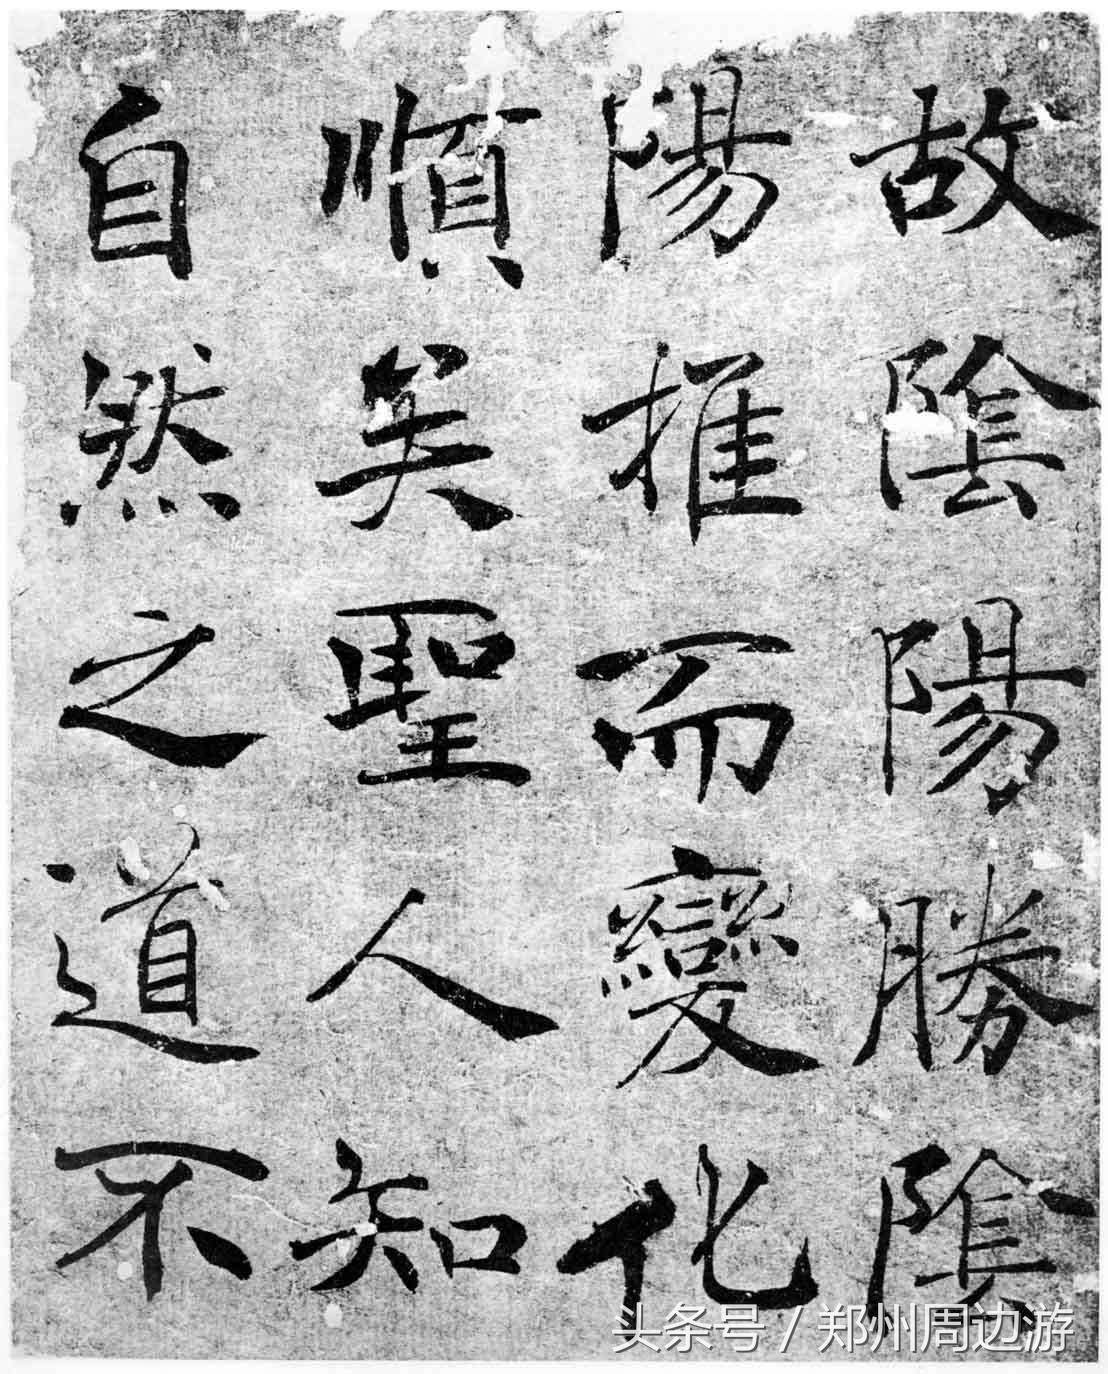 故陰陽勝陰
陽推而變化
順矣聖人知
自然之道不
头条号 / 郑州周边游